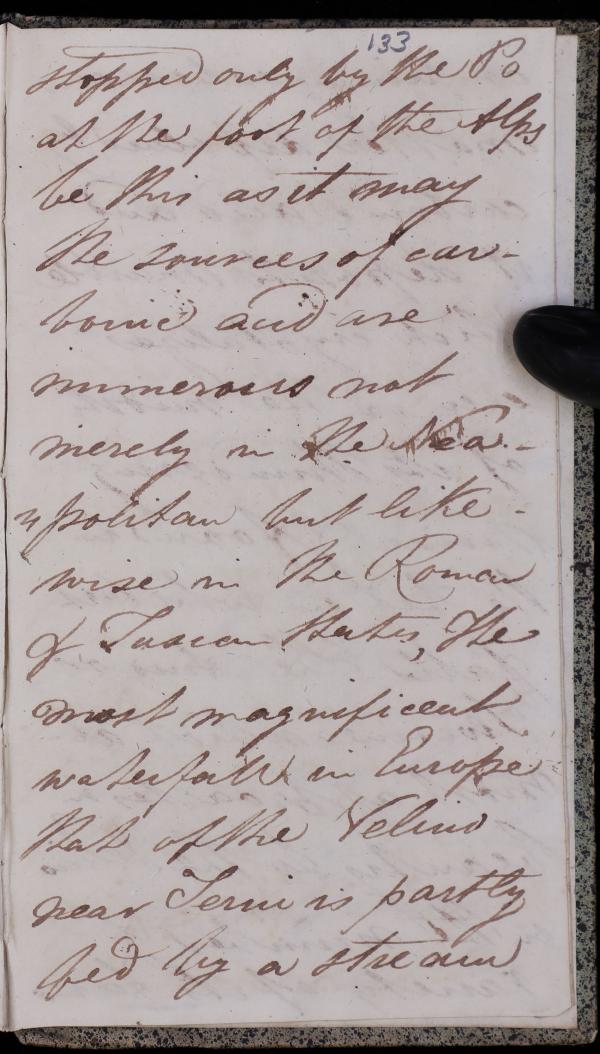 133
stopped only by the Po
at the foot of the Alps
be this as it may
the sources of car-
bonic acid are
numerous not
merely in the Nea-
politan but like-
wise in the Roman
& Tuscan States, The
most magnificent
waterfall in Europe
that of the Velino
near Terni is partly
fed by a stream